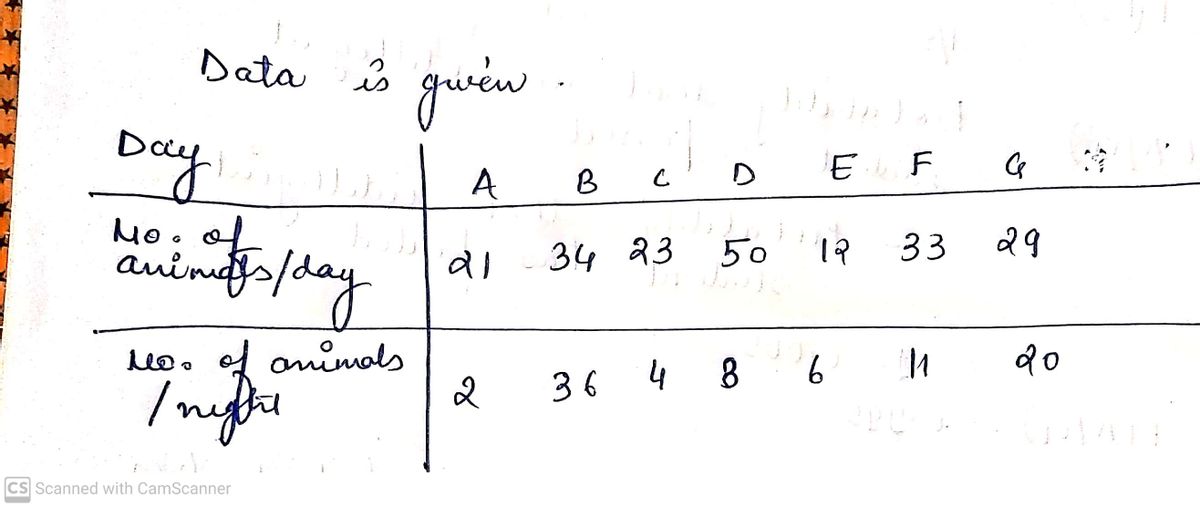 Data is given.
Day A B C D E F G
No. of
animals/day 21 34 23 50 12 33 29
No. of animals
/night 2 36 4 8 6 11 20
CS Scanned with CamScanner